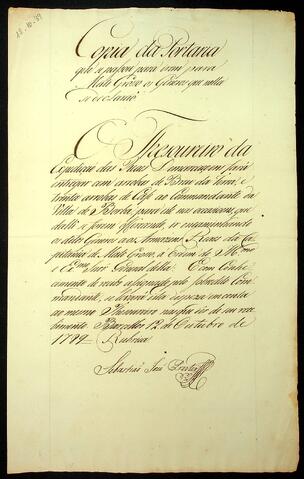 12-10-89
Copia da Portaria
que se passou para irem para
Mato Groso os Generos que nella
se declarão
O Thezoureiro da
Expedição das Reaes Demarcaçoens fará
entregar cem arrobas de Breu da terra, e
trinta arrobas de Caffé ao Commandante da
Villa de Borba para ele nas occazioens que
se forem offerecendo, ir encaminhando
os ditos Generos aos Armazens Reaes da Ca-
pitania de Mato Groso, a Ordem do Illmo
e Exmo Snr General della. E com Conhe-
cimento de recibo assignado pelo sobredito Com-
mandante, se levará esta despeza em conta
ao mesmo Thizoureiro nas de seu rece-
bimento Barcellos 12 de Outubro de
1789 = Rubrica
Sebastiaõ José Prestes